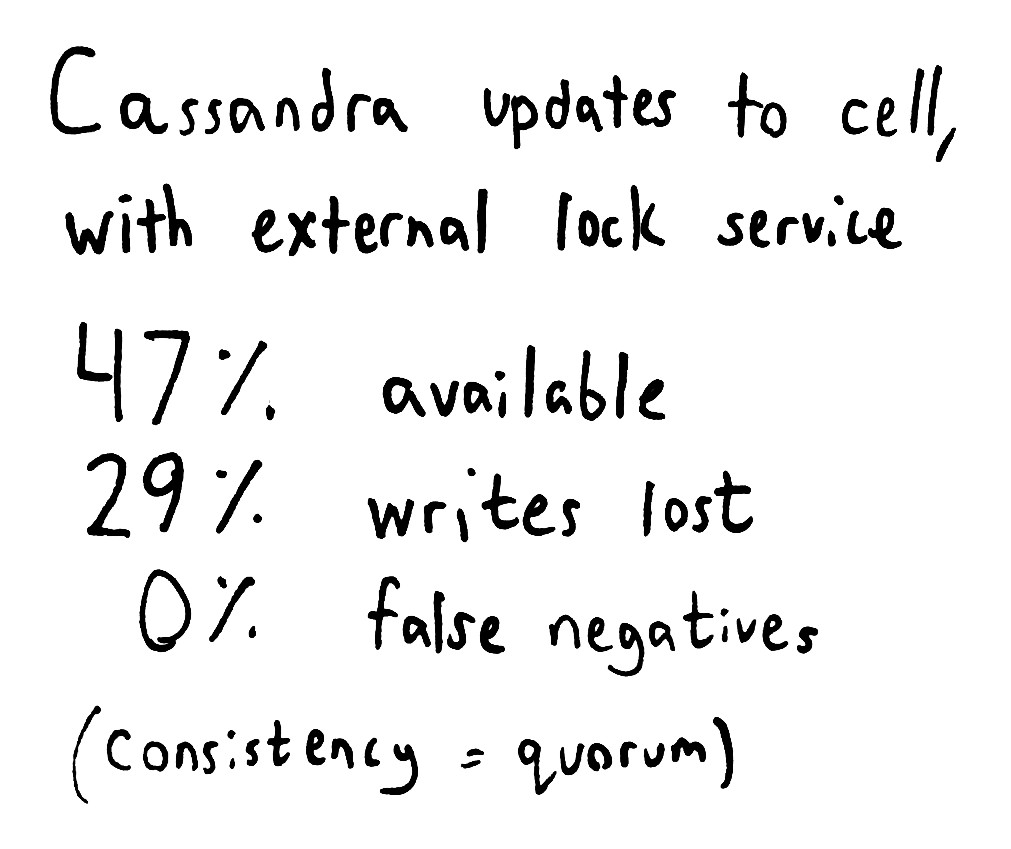 Cassandra updates to cell,
with external lock service
47% available
29% writes lost
0% false negatives
(consistency = quorum)